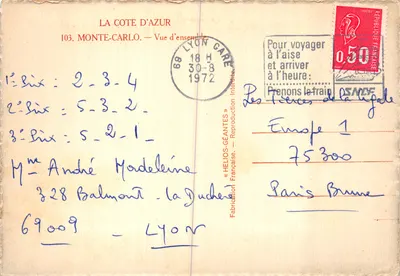 LA COTE D'AZUR
103. MONTE-CARLO. — Vue d'ensemble
69 LYON GARE
18 H
30-8
1972
Pour voyager
à l'aise
et arriver
à l'heure:
Prenons le train
SNCF
0,50
1° Six: - 2-3-4
2° Six: 5-3-2-
3° Six: 5-2-1-
Mme André Madeleine
328 Balmont - la Duchère
69009 - LYON
"HELIOS-GEANTES" — Reproduction
Fabrication Française.
Les Pièces de la
Europe 1
75300
Paris Brune